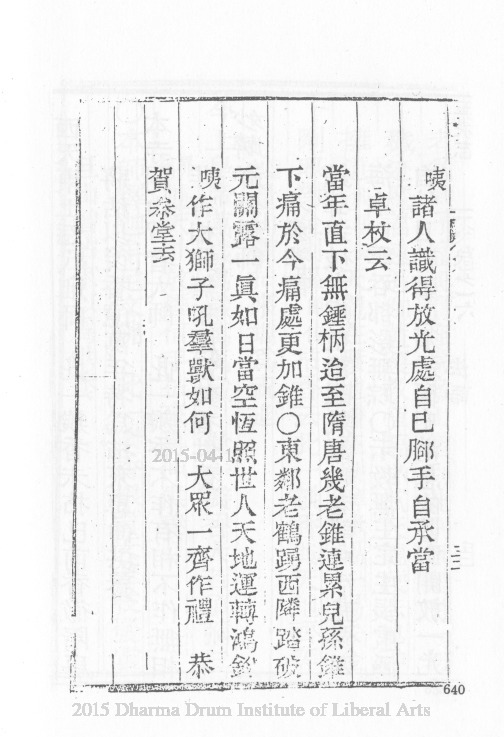 咦諸人識得放光處自己腳手自承當
卓杖云
當年直下無鏪柄迨至隋唐幾老錐連累兒孫錐
下痛於今痛處更加錐〇東鄰老鶴踢西隣踏破
元關露一眞如日當空恆照世人天地運轉鴻鈞
咦作大獅子吼羣獸如何 大眾一齊作禮 恭
賀叅堂去
2015-04-
640
2015 Dharma Drum Institute of Liberal Arts